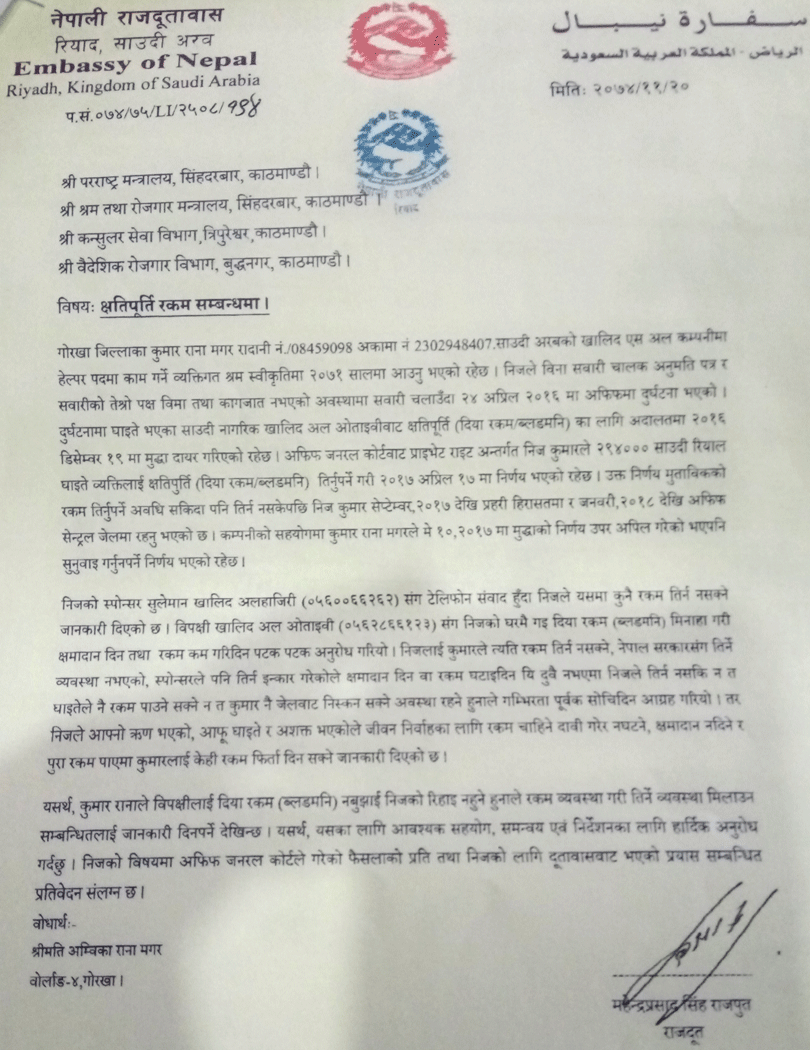 नेपाली राजदूतावास
रियाद, साउदी अरव
Embassy of Nepal
Riyadh, Kingdom of Saudi Arabia
प.सं.०७४/७५/LI/२५०८/११४
سفارة نيبال
الرياض - المملكة العربية السعودية
मितिः २०७४/११/२०
नेपाली राजदूतावास
रियाद
श्री परराष्ट्र मन्त्रालय, सिंहदरबार, काठमाण्डौ ।
श्री श्रम तथा रोजगार मन्त्रालय, सिंहदरबार, काठमाण्डौ ।
श्री कन्सुलर सेवा विभाग,त्रिपुरेश्वर,काठमाण्डौ ।
श्री वैदेशिक रोजगार विभाग, बुद्धनगर, काठमाण्डौ ।
विषयः क्षतिपूर्ति रकम सम्बन्धमा ।
गोरखा जिल्लाका कुमार राना मगर रादानी नं./08459098 अकामा नं 2302948407.साउदी अरबको खालिद एस अल कम्पनीमा
हेल्पर पदमा काम गर्ने व्यक्तिगत श्रम स्वीकृतिमा २०७१ सालमा आउनु भएको रहेछ । निजले विना सवारी चालक अनुमति पत्र र
सवारीको तेश्रो पक्ष विमा तथा कागजात नभएको अवस्थामा सवारी चलाउँदा २४ अप्रिल २०१६ मा अफिफमा दुर्घटना भएको ।
दुर्घटनामा घाइते भएका साउदी नागरिक खालिद अल ओताइवीवाट क्षतिपूर्ति (दिया रकम/ब्लडमनि) का लागि अदालतमा २०१६
डिसेम्वर १९ मा मुद्धा दायर गरिएको रहेछ । अफिफ जनरल कोर्टवाट प्राइभेट राइट अन्तर्गत निज कुमारले २९४००० साउदी रियाल
घाइते व्यक्तिलाई क्षतिपुर्ति (दिया रकम/ब्लडमनि) तिर्नुपर्ने गरी २०१७ अप्रिल १७ मा निर्णय भएको रहेछ । उक्त निर्णय मुताविकको
रकम तिर्नुपर्ने अवधि सकिदा पनि तिर्न नसकेपछि निज कुमार सेप्टेम्वर,२०१७ देखि प्रहरी हिरासतमा र जनवरी,२०१८ देखि अफिफ
सेन्ट्रल जेलमा रहनु भएको छ । कम्पनीको सहयोगमा कुमार राना मगरले मे १०,२०१७ मा मुद्धाको निर्णय उपर अपिल गरेको भएपनि
सुनुवाइ गर्नुनपर्ने निर्णय भएको रहेछ ।
निजको स्पोन्सर सुलेमान खालिद अलहाजिरी (०५६००६६२६२) संग टेलिफोन संवाद हुँदा निजले यसमा कुनै रकम तिर्न नसक्ने
जानकारी दिएको छ । विपक्षी खालिद अल ओताइवी (०५६२८६६१२३) संग निजको घरमै गइ दिया रकम (ब्लडमनि) मिनाहा गरी
क्षमादान दिन तथा रकम कम गरिदिन पटक पटक अनुरोध गरियो । निजलाई कुमारले त्यति रकम तिर्न नसक्ने, नेपाल सरकारसंग तिर्ने
व्यवस्था नभएको, स्पोन्सरले पनि तिर्न इन्कार गरेकोले क्षमादान दिन वा रकम घटाइदिन यि दुवै नभएमा निजले तिर्न नसकि न त
घाइतेले नै रकम पाउने सक्ने न त कुमार नै जेलवाट निस्कन सक्ने अवस्था रहने हुनाले गम्भिरता पूर्वक सोचिदिन आग्रह गरियो । तर
निजले आफ्नो ऋण भएको, आफू घाइते र अशक्त भएकोले जीवन निर्वाहका लागि रकम चाहिने दावी गरेर नघटने, क्षमादान नदिने र
पुरा रकम पाएमा कुमारलाई केही रकम फिर्ता दिन सक्ने जानकारी दिएको छ ।
यसर्थ, कुमार रानाले विपक्षीलाई दिया रकम (ब्लडमनि) नबुझाई निजको रिहाइ नहुने हुनाले रकम व्यवस्था गरी तिर्ने व्यवस्था मिलाउन
सम्बन्धितलाई जानकारी दिनपर्ने देखिन्छ । यसर्थ, यसका लागि आवश्यक सहयोग, समन्वय एवं निर्देशनका लागि हार्दिक अनुरोध
गर्दछु । निजको विषयमा अफिफ जनरल कोर्टले गरेको फैसलाको प्रति तथा निजको लागि दूतावासवाट भएको प्रयास सम्बन्धित
प्रतिवेदन संलग्न छ ।
वोधार्थः-
श्रीमति अम्विका राना मगर
वोर्लाङ-४,गोरखा ।
महेन्द्रप्रसाद सिंह राजपुत
राजदूत